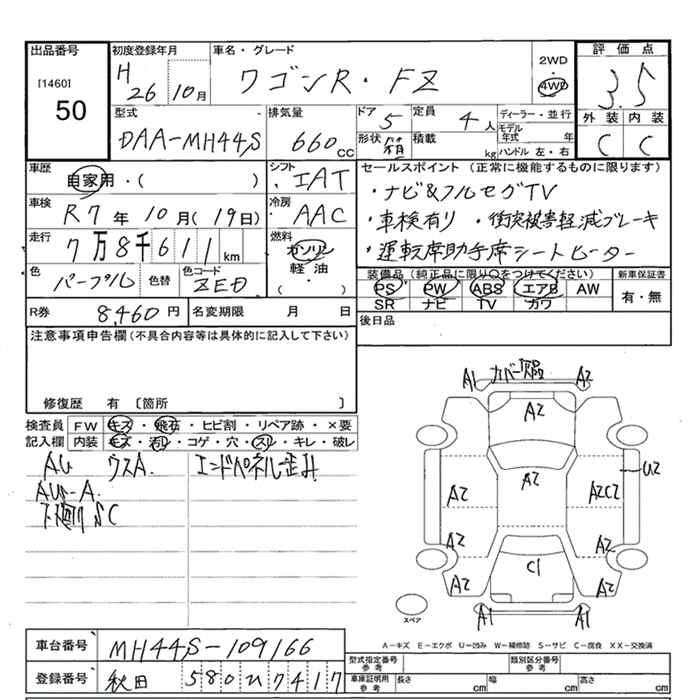 出品番号
[1460]
50
初度登録年月
H 26 10月
車名・グレード
ワゴンR・FZ
2WD
・
4WD
評価点
3.5
外装 内装
C C
型式
DAA-MH44S
排気量
660 cc
ドア 5
定員 4人
形状 箱
積載 kg
ディーラー・並行
モデル年式 年
ハンドル 左・右
車歴
自家用・( )
シフト
IAT
車検
R7年10月(19日)
冷房
AAC
走行
7万8千611km
燃料
ガソリン
軽油
・( )
色
パープル
色替
色コード
ZED
セールスポイント(正常に機能するものに限ります)
・ナビ&フルセグTV
・車検有り ・衝突被害軽減ブレーキ
・運転席助手席シートヒーター
装備品(純正品に限り○をつけてください)
PS PW ABS エアB AW
SR ナビ TV カワ
新車保証書
有・無
R券 8,460円
名変期限 月 日
後日品
注意事項申告欄(不具合内容等は具体的に記入して下さい)
修復歴 有〔箇所 〕
検査員記入欄
FW キズ・飛石・ヒビ割・リペア跡・×要
内装 キズ・汚レ・コゲ・穴・スリ・キレ・破レ
AU ウスA.
エンドパネル歪み
下廻りSC
A1 カバー欠品 A2
A2
A2
U2
A2
A2C2
A2
A2
C1
A2
A2
A1
A1
スペア
A-キズ E-エクボ U-凹み W-補修跡 S-サビ C-腐食 XX-交換済
車台番号
MH44S-109166
登録番号
秋田 580 ひ 7417
型式指定番号
参考
類別区分番号
参考
車庫証明用
参考
長さ cm
幅 cm
高さ cm